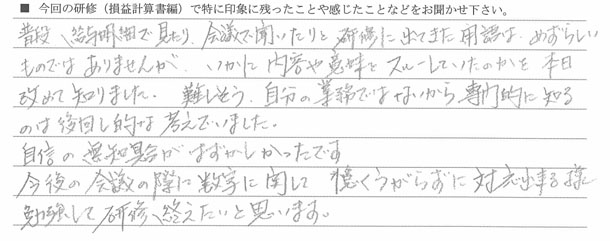 ■ 今回の研修（損益計算書編）で特に印象に残ったことや感じたことなどをお聞かせ下さい。
普段、給与明細で見たり、会議で聞いたりと研修に出てきた用語は、めずらしい
ものではありませんが、いかに内容や意味をスルーしていたのかを本日
改めて知りました。難しそう、自分の業務ではないから専門的に知る
のは後回し的な考えでいました。
自信の無知具合がはずかしかったです
今後の会議の際に数字に関して憶くうがらずに対応出来る様
勉強して研修、終えたいと思います。